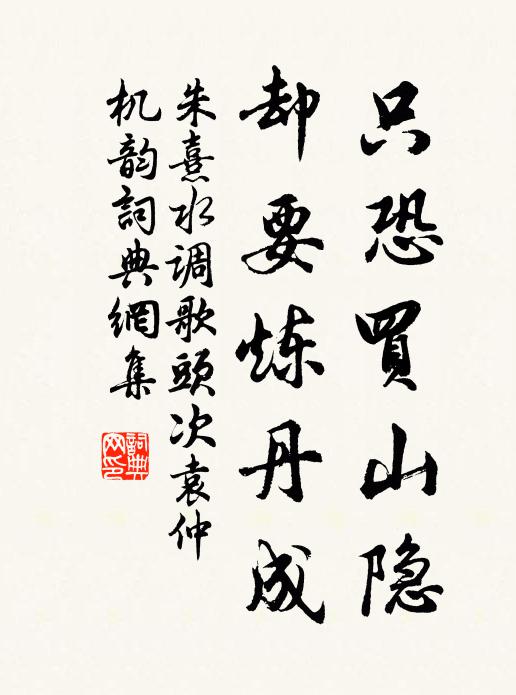 只恐買山隐
却要炼丹成
朱熹水调歌頭次袁仲
机韵詞典網集
詞典网印